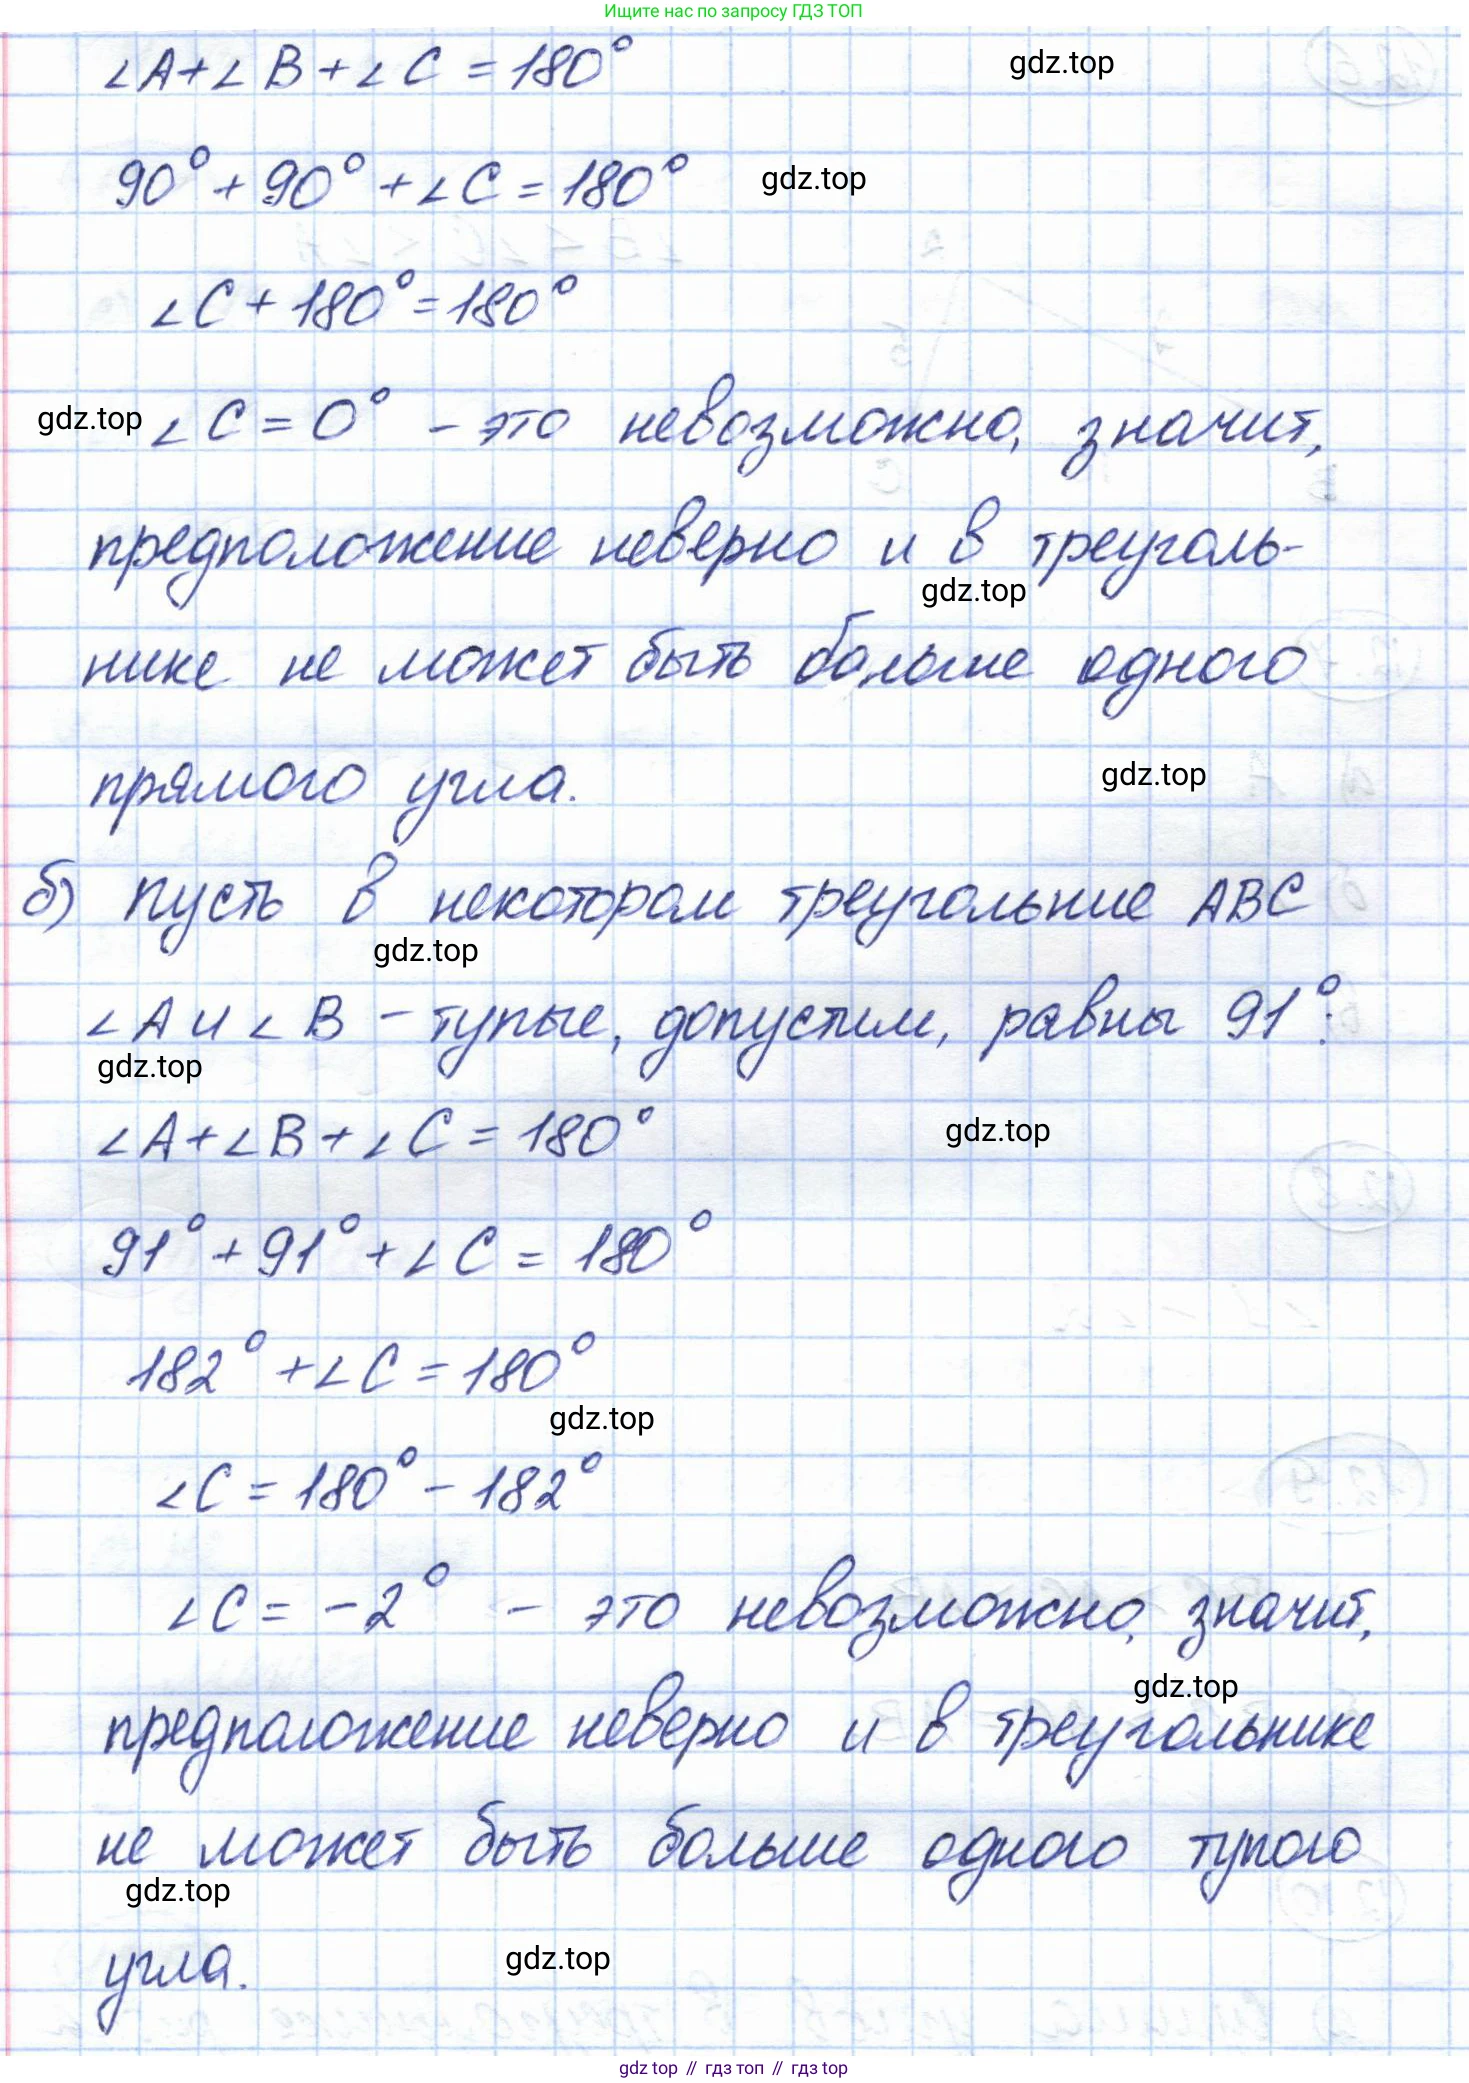 Ищите нас по запросу ГДЗ ТОП
∠A+∠B+∠C=180° gdz.top
90°+90°+∠C=180° gdz.top
∠C+180°=180°
gdz.top ∠C=0° - это невозможно, значит,
предположение неверно и в треуголь-
gdz.top
нике не может быть больше одного
прямого угла. gdz.top
б) Пусть в некотором треугольние ABC
gdz.top
∠A и ∠B - тупые, допустим, равны 91°:
gdz.top
∠A+∠B+∠C=180° gdz.top
91°+91°+∠C=180°
182°+∠C=180°
gdz.top
∠C=180°-182°
∠C=-2° - это невозможно, значит,
gdz.top
предположение неверно и в треугольнике
не может быть больше одного тупого
gdz.top
угла. gdz.top
gdz top // гдз топ // гдз top